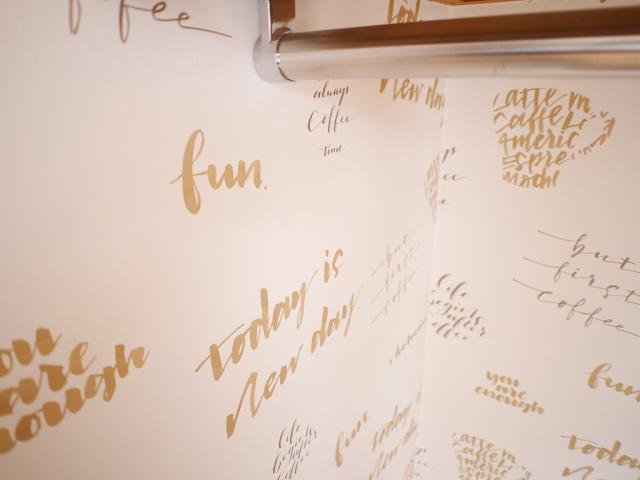 coffee
always
Coffee
time
fun.
today is
New day.
you
are
enough
but
first
coffee
Life
begins
after
coffee
fun
today
New day
New day
Latte m
Caffe L
Americ
Espre
Moch
but
first
coffee
Life
begins
after
coffee
you
are
enough
fun
Latte m
Caffe L
Americ
Espre
today
New